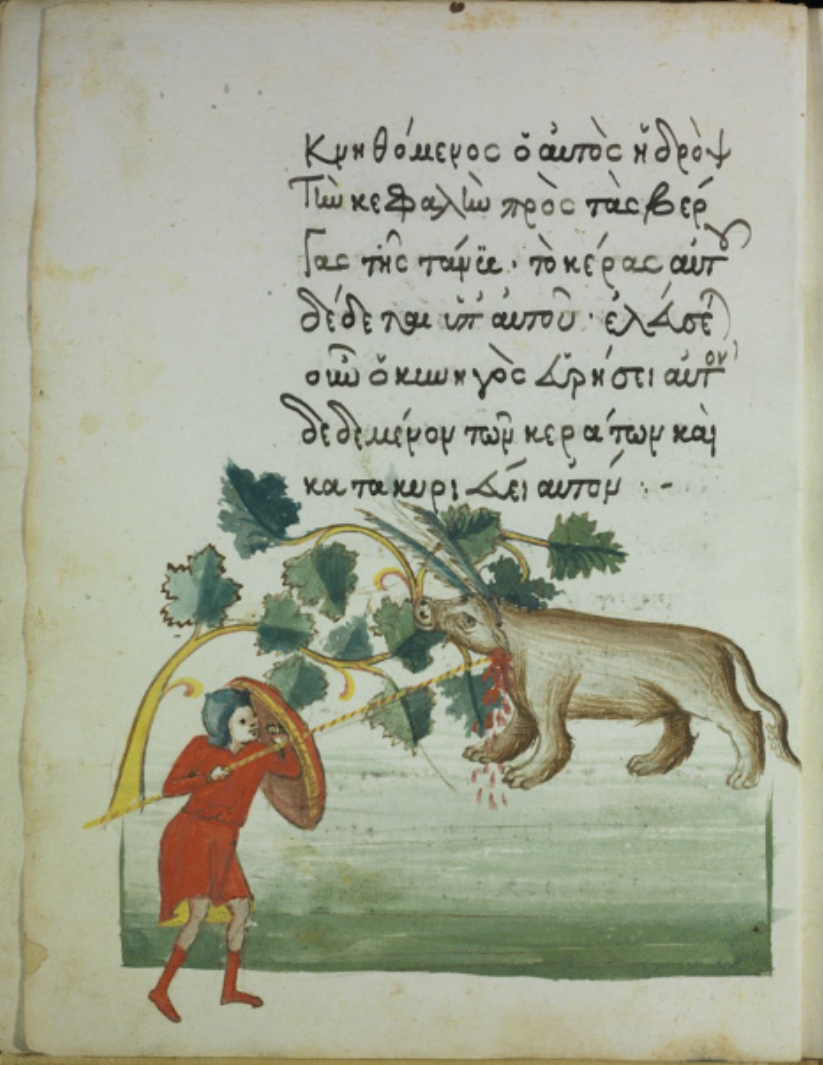 Κνηθόμενος ὁ αὐτὸς ἢ ὕδρωψ
τὴν κεφαλὴν πρὸς τὰς βέρ
γας τῆς τάνϊε · τὸ κέρας αὐτοῦ
δέδεται ὑπ αὐτοῦ · ἐλάσει
οὖν ὁ κυνηγὸς εὑρήσει αὐτὸν
δεδεμένον τῶν κεράτων καὶ
κατακυριεύει αὐτόν · -